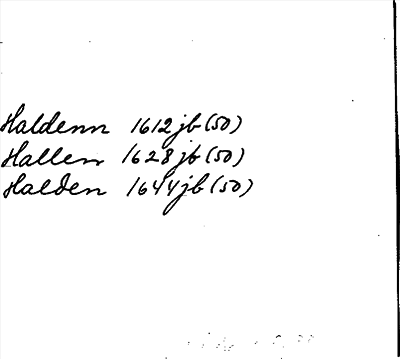 Haldenn 1612 jb (50)
Hallen 1628 jb (50)
Halden 1644 jb (50)